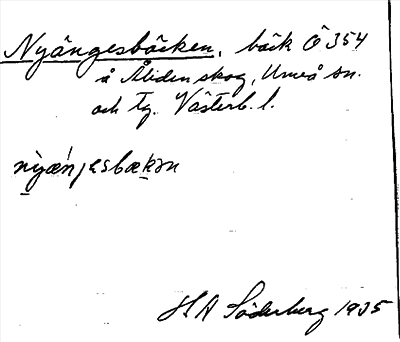 Nyängesbäcken, bäck Ö 354
å Åliden skog, Umeå sn.
och tg. Västerb. l.
nyæŋɟɛsbækən
H A Söderberg 1935